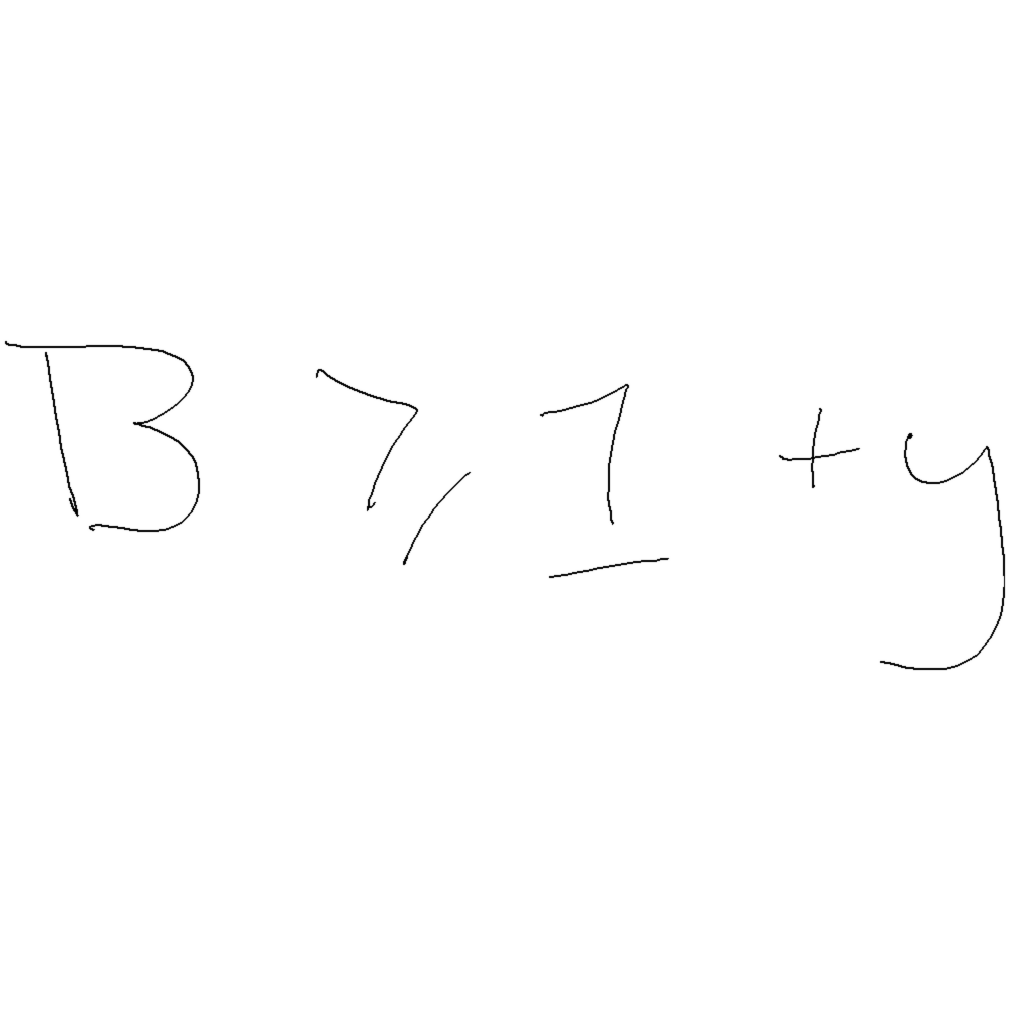 B ⩾ 1 + y